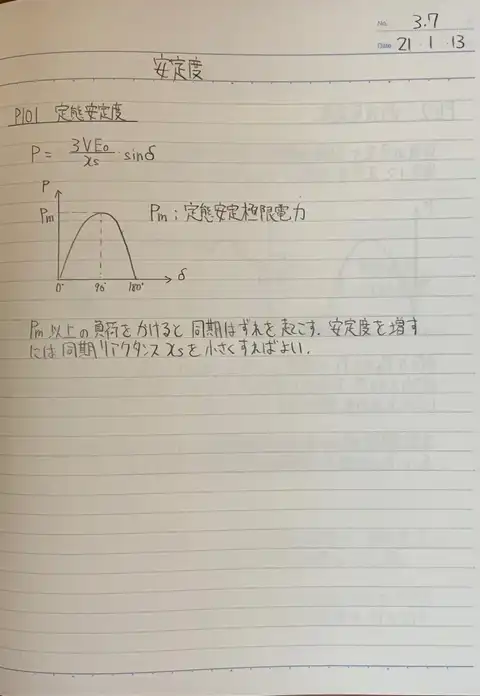 No. 3.7
Date 21・1・13
安定度
P101 定態安定度
P = 3VE₀/xs・sinδ
P
Pm
Pm ; 定態安定極限電力
0° 90° 180° δ
Pm以上の負荷をかけると同期はずれを起こす. 安定度を増す
には同期リアクタンスxsを小さくすればよい.